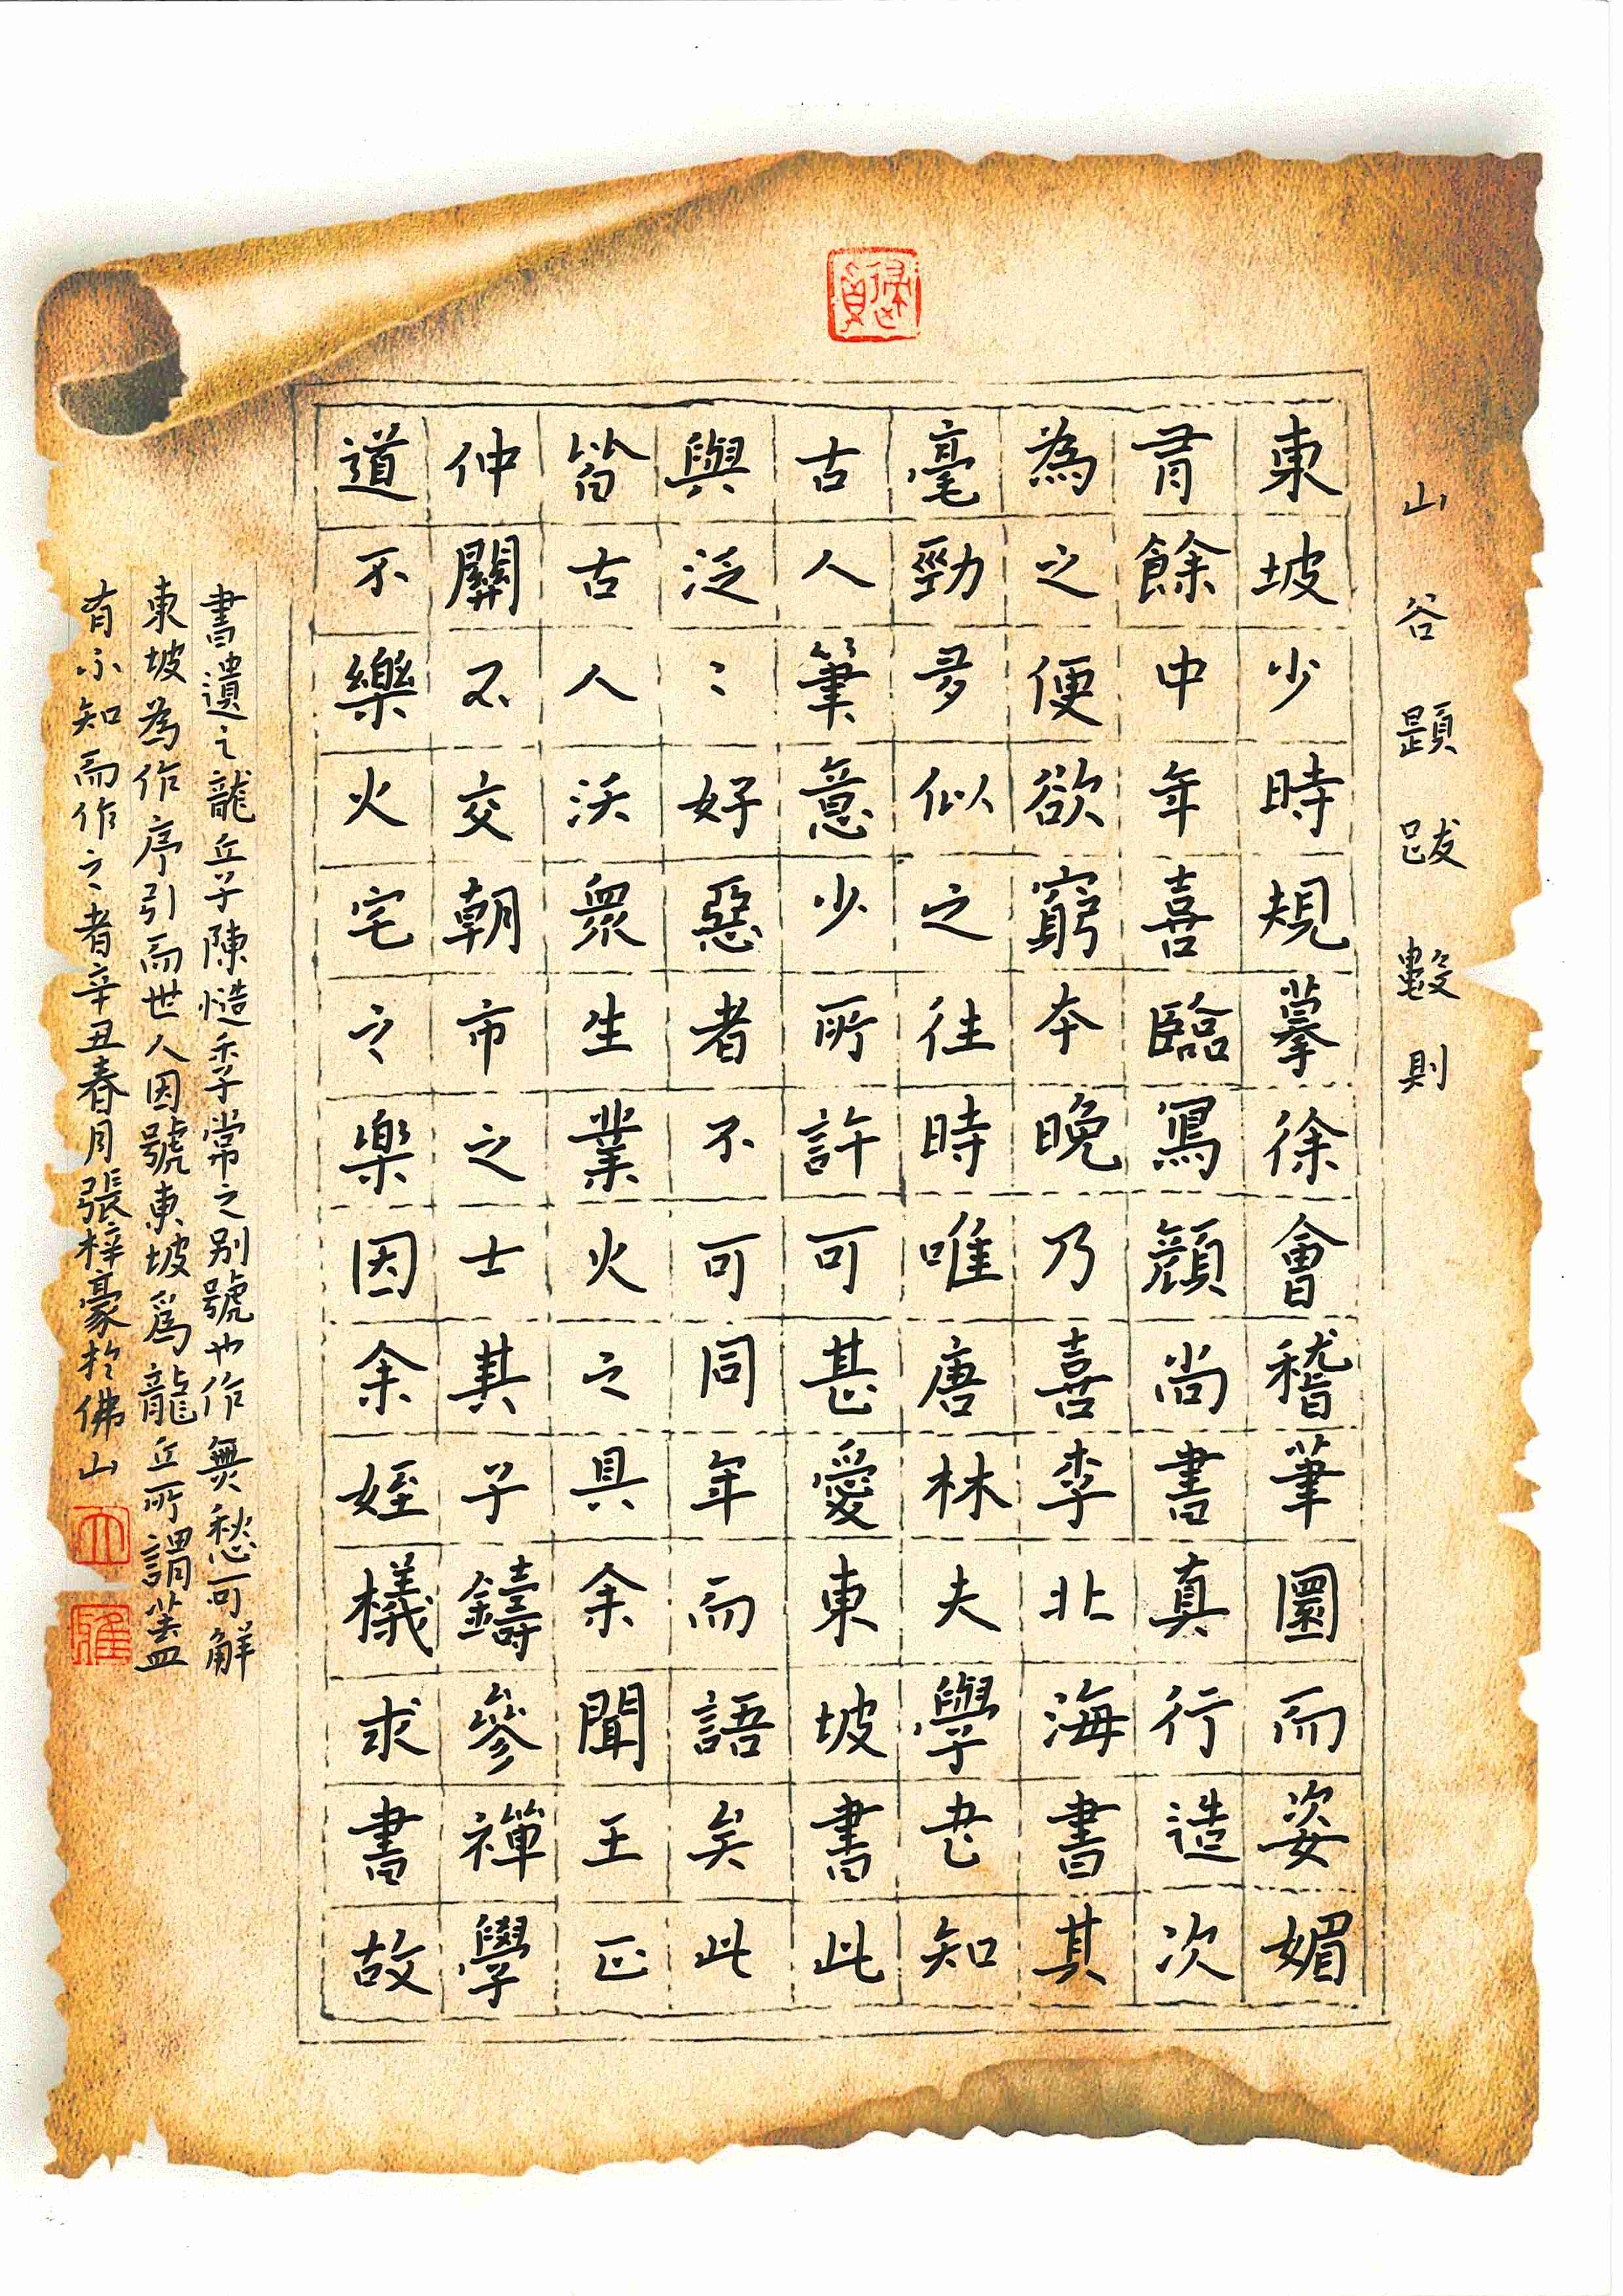 山谷題跋數則
東坡少時規摹徐會稽筆圜而姿媚
有餘中年喜臨寫顏尚書真行造次
為之便欲窮本晚乃喜李北海書其
毫勁多似之往時唯林夫學書知
古人筆意少所許可甚愛東坡書此
與泛〻好惡者不可同年而語矣此
皆古人沃眾生業火之具余聞王正
仲關不交朝市之士其子鑄參禪學
道不樂火宅之樂因余姪檥求書故
書遺之龍丘子陳慥季常之別號也作無愁可解
東坡為作序引而世人因號東坡爲龍丘所謂蓋
有不知而作之者辛丑春月張梓豪於佛山